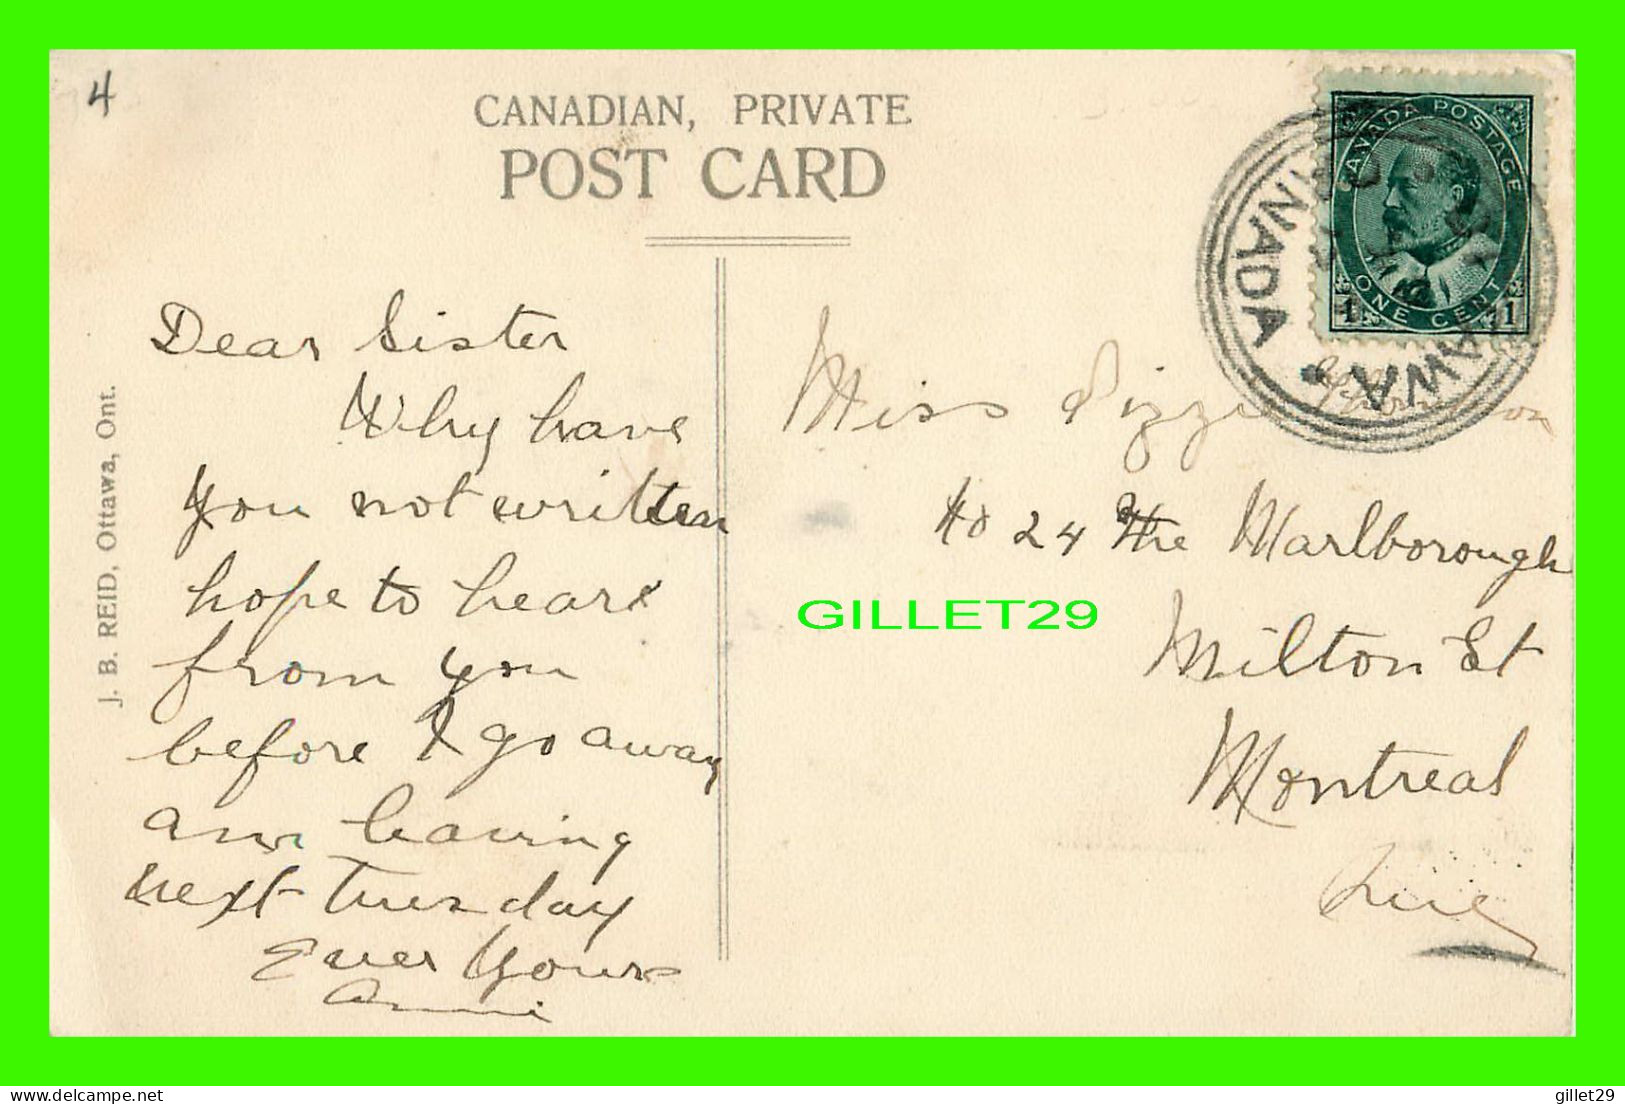 4
CANADIAN, PRIVATE
POST CARD
CANADA POSTAGE
ONE CENT
1 1
CANADA
Dear Sister
Why have
you not written
hope to hear
from you
before I go away
am leaving
next Tuesday
Ever Yours
Annie
J. B. REID, Ottawa, Ont.
Miss Lizzie
No 24 The Marlborough
Milton St
Montreal
Que
GILLET29
delcampe.net
gillet29